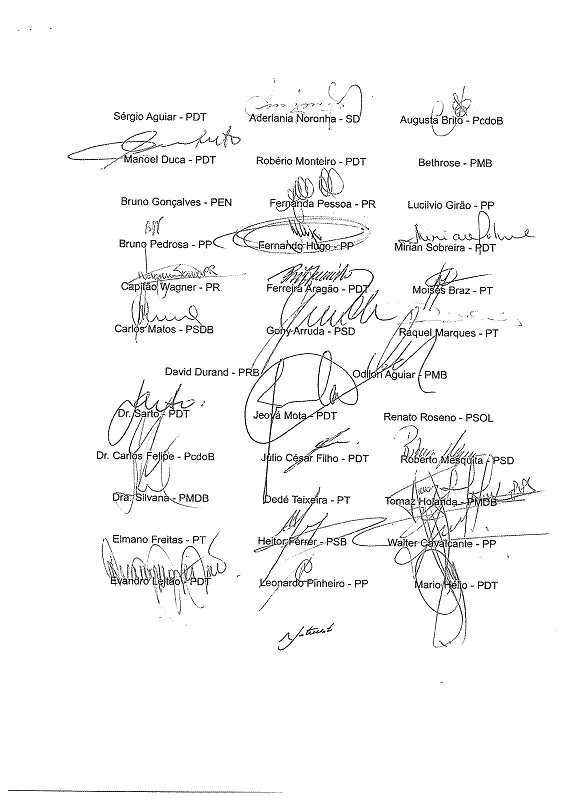 Sérgio Aguiar - PDT Aderlania Noronha - SD Augusta Brito - PcdoB
Manoel Duca - PDT Robério Monteiro - PDT Bethrose - PMB
Bruno Gonçalves - PEN Fernanda Pessoa - PR Lucilvio Girão - PP
Bruno Pedrosa - PP Fernando Hugo - PP Mirian Sobreira - PDT
Capitão Wagner - PR Ferreira Aragão - PDT Moisés Braz - PT
Carlos Matos - PSDB Gony Arruda - PSD Raquel Marques - PT
David Durand - PRB Odilon Aguiar - PMB
Dr. Sarto - PDT Jeová Mota - PDT Renato Roseno - PSOL
Dr. Carlos Felipe - PcdoB Júlio César Filho - PDT Roberto Mesquita - PSD
Dra. Silvana - PMDB Dedé Teixeira - PT Tomaz Holanda - PMDB
Elmano Freitas - PT Heitor Férrer - PSB Walter Cavalcante - PP
Evandro Leitão - PDT Leonardo Pinheiro - PP Mario Hélio - PDT